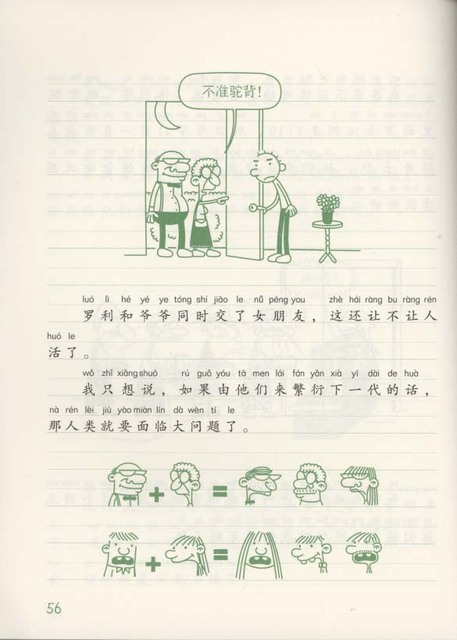 不准驼背！
luó lì hé yé ye tóng shí jiāo le nǚ péng you zhè hái ràng bu ràng rén
罗利和爷爷同时交了女朋友，这还让不让人
huó le
活了。
wǒ zhǐ xiǎng shuō rú guǒ yóu tā men lái fán yǎn xià yī dài de huà
我只想说，如果由他们来繁衍下一代的话，
nà rén lèi jiù yào miàn lín dà wèn tí le
那人类就要面临大问题了。
56